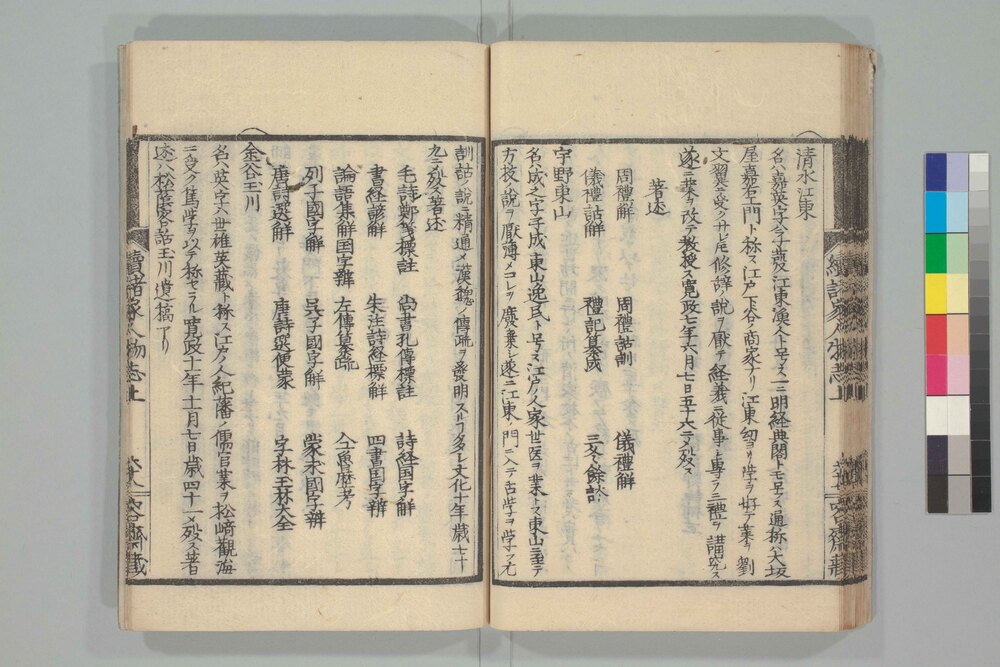 清水江東
名ハ嘉英字ハ子發江東漁人ト号ス一ニ明経典閣トモ号ス通称ハ大坂
屋嘉右エ門ト称ス江戸下谷ノ商家ナリ江東幼ヨリ学ヲ好テ業ヲ劉
文翼ニ受クサレ𪜈修辞ノ説ヲ厭テ経義ニ従事シ専ラ三禮ヲ講究ス
遂ニ業ヲ改テ教授ス寛政七年六月七日五十六ニテ殁ス
著述
周禮解 周禮詁訓 儀禮解
儀禮詁解 禮記纂成 三冬餘計
宇野東山
名ハ成之字子成東山逸民ト号ス江戸ノ人家世医ヲ業トス東山ニ至テ
方技ノ説ヲ厭薄メコレヲ廢棄シ遂ニ江東ノ門ニ入テ古学ヲ学フ尤
續諸家人物志上
訓詁ノ説ニ精通メ漢魏ノ傳疏ヲ發明スルヿ多シ文化十年歳七十
九ニテ殁ス著述
毛詩鄭箋標註 尚書孔傳標註 詩経国字解
書経諺解 朱注詩経標解 四書国字辨
論語集解国字辨 左傳纂疏
列子國字解 呉子國字解 蒙求國字辨
唐詩選解 唐詩選便蒙 字林玉林大全
金谷玉川
名ハ英字ハ世雄英藏ト称ス江戸ノ人紀藩ノ儒官業ヲ松﨑觀海
ニ受ク篤学ヲ以テ称セラル寛政十一年十一月七日歳四十一メ殁ス著
述ハ松蔭冢話玉川遺稿アリ
續諸家人物志上